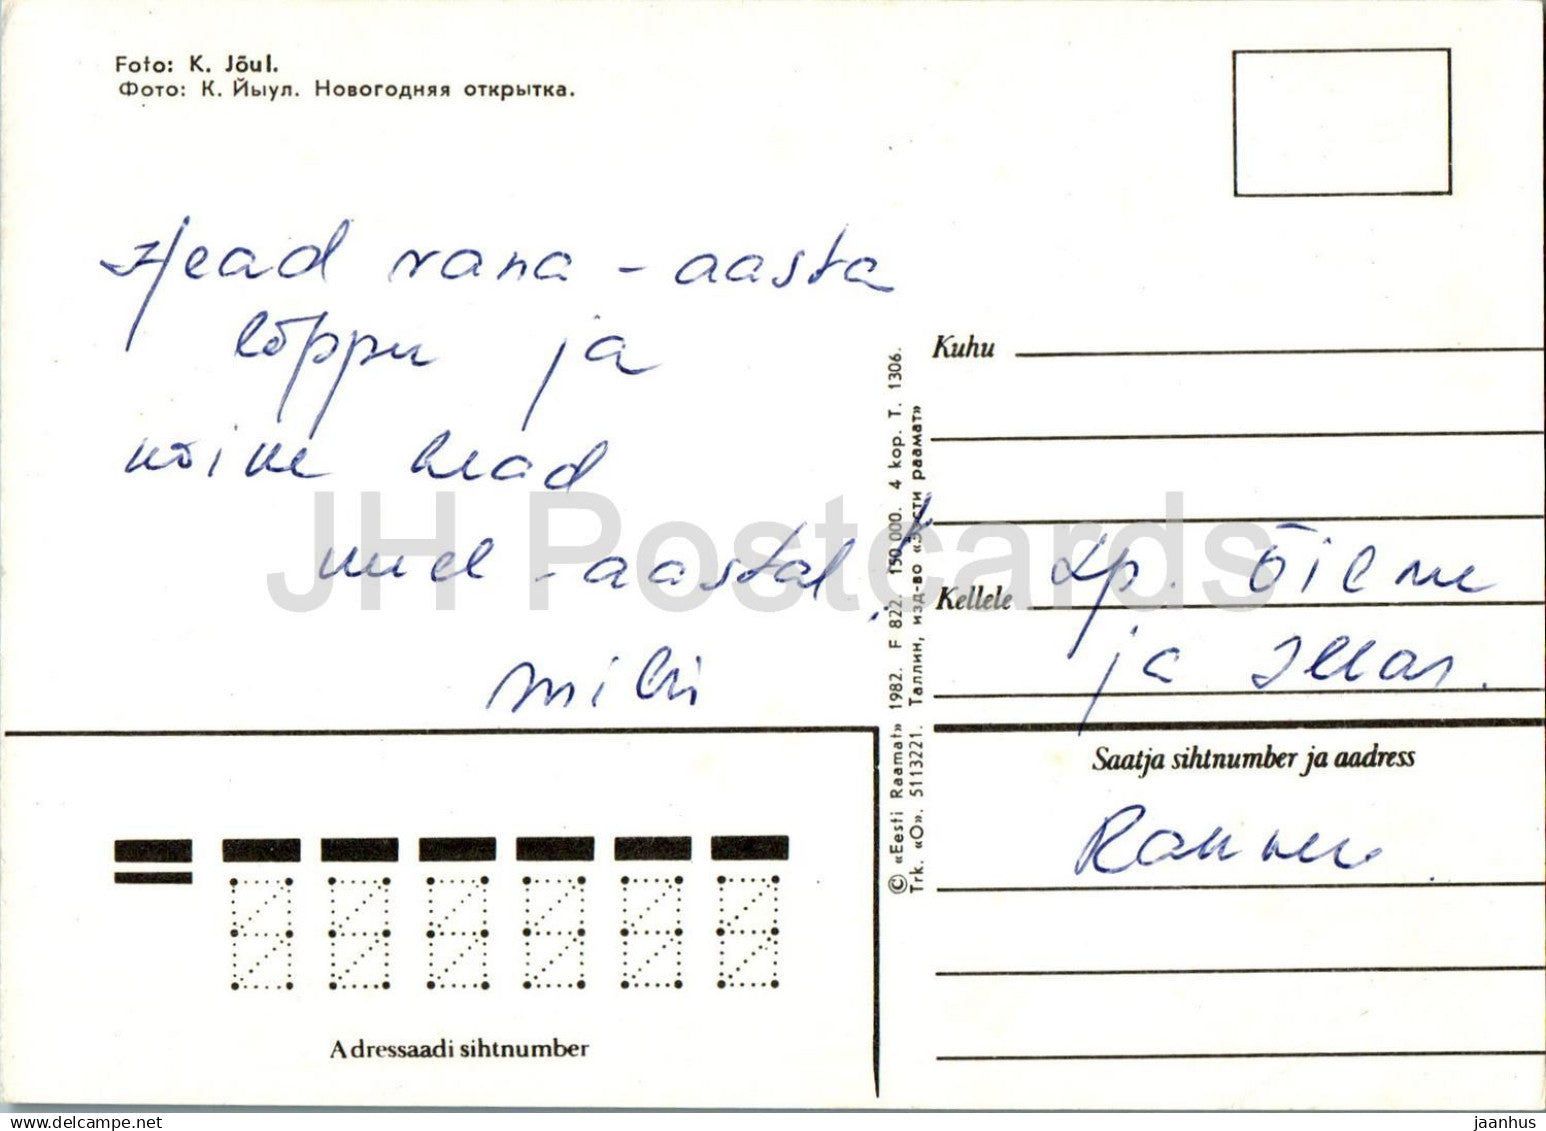 Foto: K. Jõul.
Фото: К. Йыул. Новогодняя открытка.
Head vana-aasta
lõppu ja
kõike head
uuel-aastal!
© «Eesti Raamat» 1982. F 822. 150 000. 4 kop. T. 1306.
Trk. «O». 5113221. Таллин, изд-во «Ээсти раамат»
Kuhu
Lp. Õilme
Kellele
ja Illar.
Saatja sihtnumber ja aadress
Adressaadi sihtnumber
JH Postcards
jaanhus